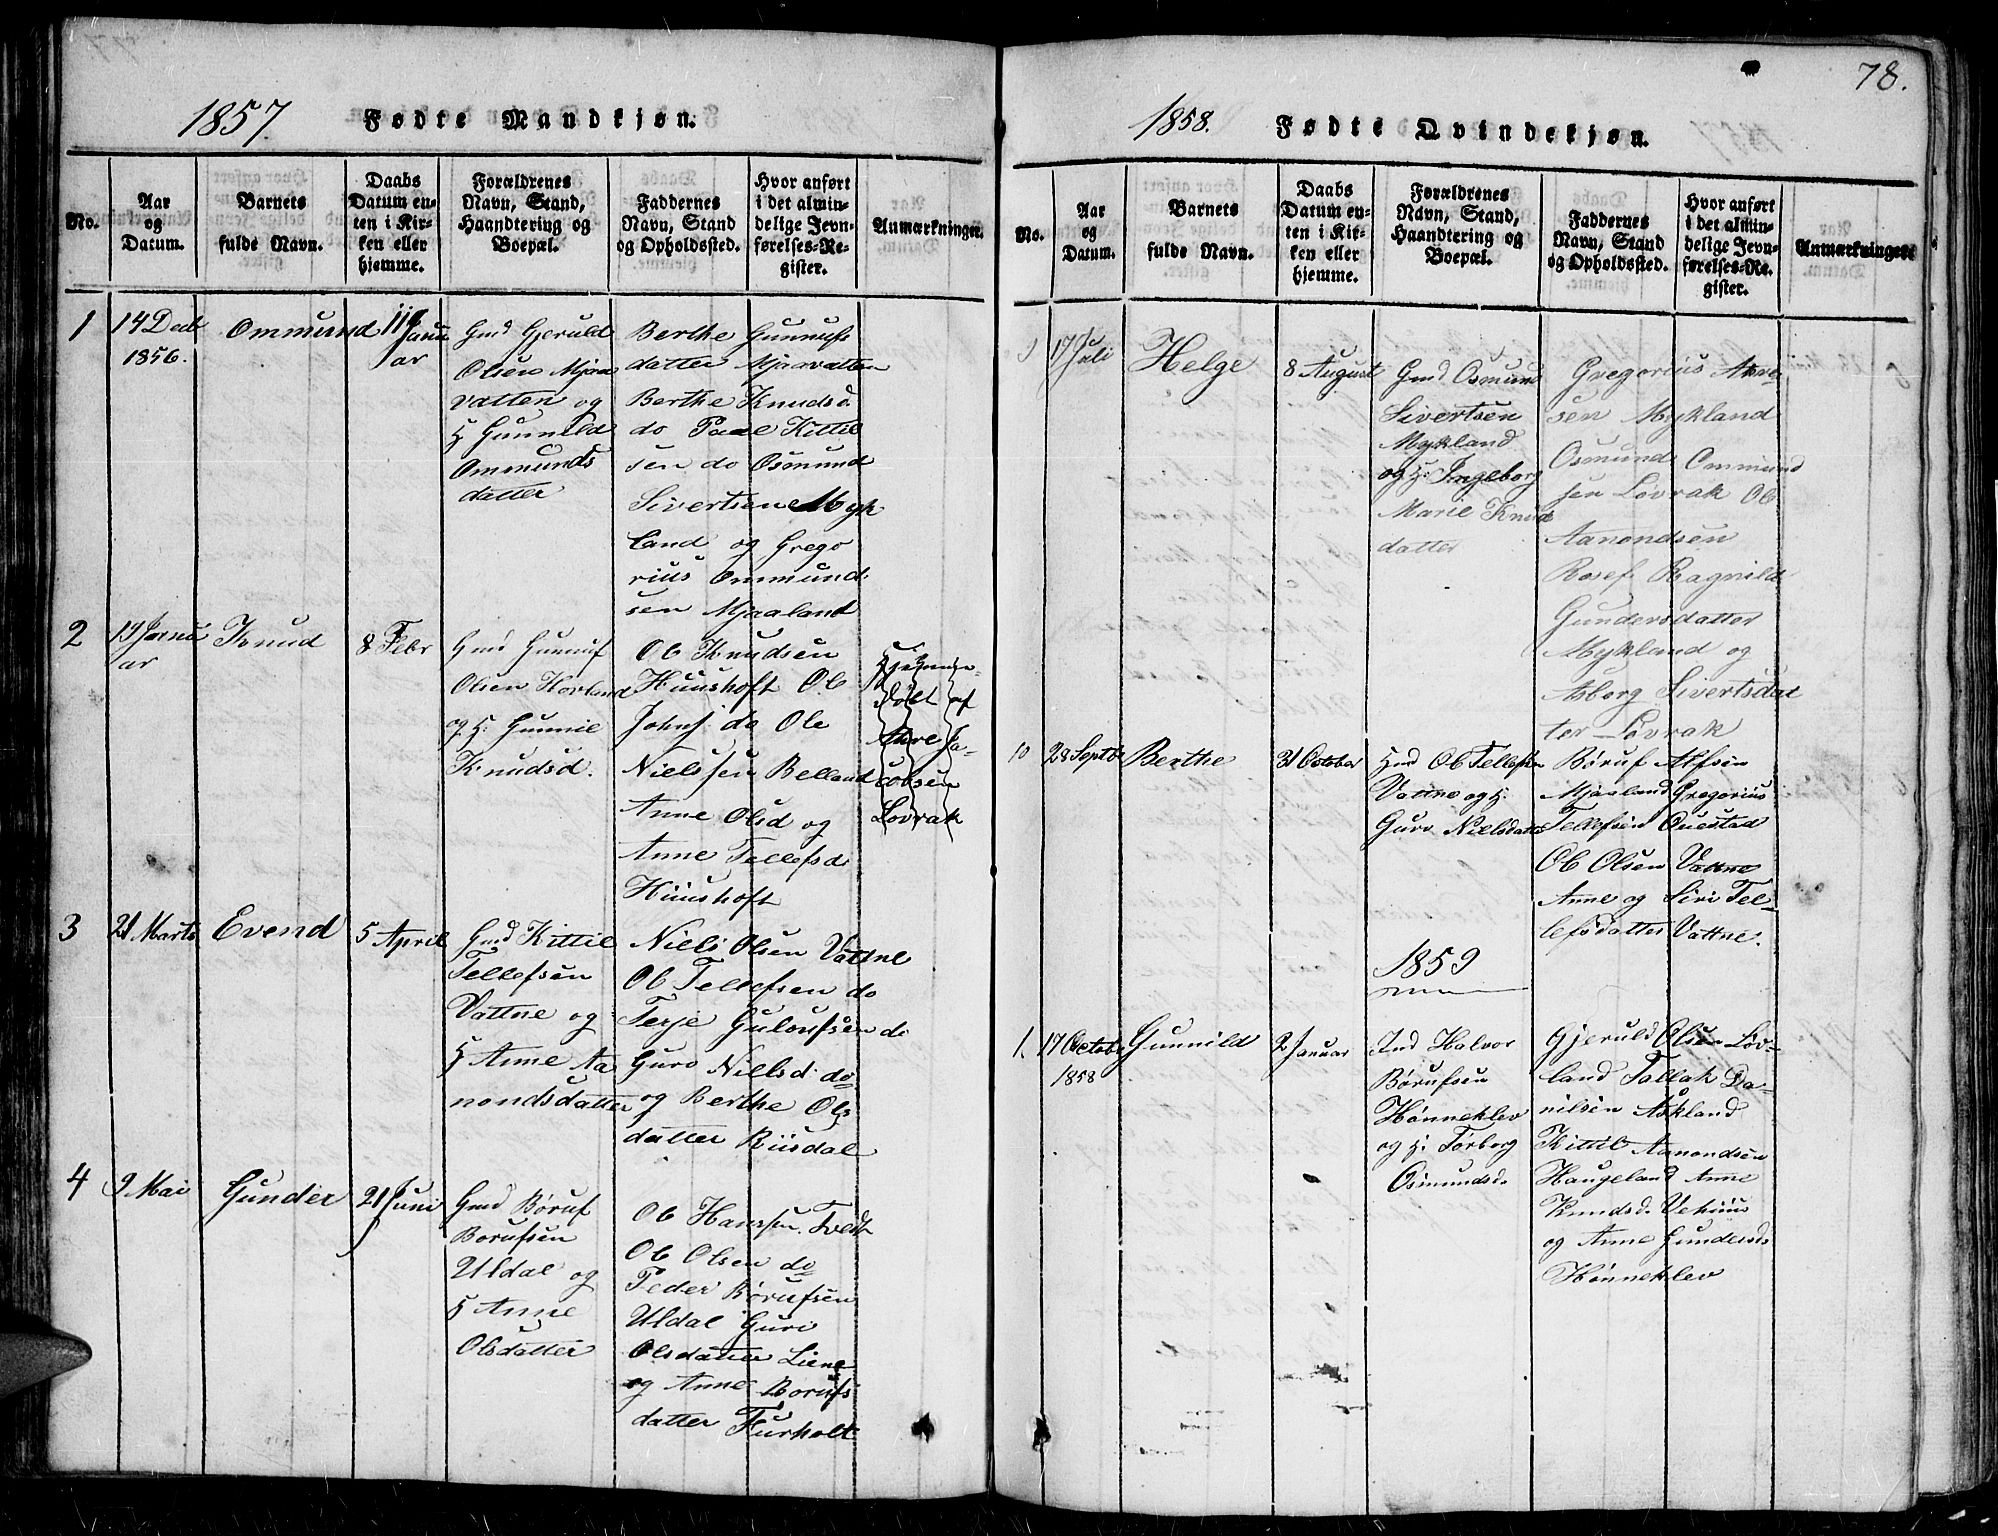 1857. Fødte Mandkjøn.
No.
Aar
og
Datum.
Barnets
fulde Navn.
Daabs
Datum en-
ten i Kir-
ken eller
hjemme.
Forældrenes
Navn, Stand,
Haandtering og
Boepæl.
Faddernes
Navn, Stand
og Opholdssted.
Hvor anført
i det almin-
delige Jevn-
førelses-Re-
gister.
Anmærkninger.
1
14 Decb
1856.
Ommund
11te Janu
ar
Gmd Gjeruld
Olsen Mjaa
vatten og
H Gunnild
Ommunds
datter
Berthe Gunnufs
datter Mjaavatten
Berthe Knudsd.
do Paal Kittil
sen do Osmund
Sivertsen Myk
land og Grego
rius Ommund
sen Mjaaland
2
19 Janu
ar
Knud
8 Febr
Gmd Gunnuf
Olsen Hovland
og H. Gunnil
Knudsd.
Ob Knudsen
Huushoft Ob
Johnj: do Ole
Nielssen Belland
Anne Olsd og
Anne Tellefsd
Huushoft
Hjemme-
døbt af
Aure Ja-
cobsen
Lovrak
3
21 Marts
Evend
5 April
Gmd Kittil
Tellefsen
Vattne og
H Anne Aa
nondsdatter
Niels Olsen Vattne
Ob Tellefsen do
Terje Guloufsen do
Guro Nielsd do
og Berthe Ols
datter Riisdal
4
9 Mai
Gunder
21 Juni
Gmd Børuf
Borufsen
Uldal og
H Anne
Olsdatter
Ob Hanssen Tvedt
Ob Olsen do
Peder Børufsen
Uldal Guri
Olsdatter Liene
og Anne Borufs
datter Furholt
78.
1858. Fødte Qvindekjøn.
No.
Aar
og
Datum.
Barnets
fulde Navn.
Daabs
Datum en-
ten i Kir-
ken eller
hjemme.
Forældrenes
Navn, Stand,
Haandtering og
Boepæl.
Faddernes
Navn, Stand
og Opholdssted.
Hvor anført
i det almin-
delige Jevn-
førelses-Re-
gister.
Anmærkninger.
9
17 Juli
Helge
8 August
Gmd Osmund
Sivertsen
Mykland
og H: Ingeborg
Marie Knuds
datter
Gregorius Aare-
sen Mykland
Osmund Ommund
sen Lovrak Ob
Aanondsen
Rosef Ragnild
Gundersdatter
Mykland og
Asborg Sivertsdat
ter Lovrak
10
28 Septbr
Berthe
31 October
Gmd Ob Tellefsen
Vattne og H.
Guro Nielsdatter
Børuf Alfsen
Mjaaland Gregorius
Tellefsen Ouestad
Ob Olsen Vattne
Anne og Siri Tel-
lefsdatter Vattne.
1859
1.
17 Octobr
1858
Gunnild
2 Januar
Ind Halvor
Børufsen
Hønneklev
og H: Torborg
Osmundsd.
Gjeruld Olsen Lov-
land Tallak Da-
nilsen Askland
Kittil Aanondsen
Haugeland Anne
Knudsd. Vehuus
og Anne Gundersd
Hønneklev